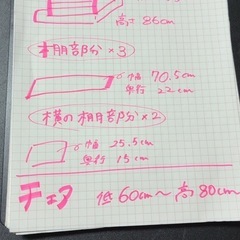 高さ 86cm
棚部分 ×3
巾 70.5cm
奥行 22cm
横の棚部分 ×2
巾 25.5cm
奥行 15cm
チェア 低60cm〜高80cm